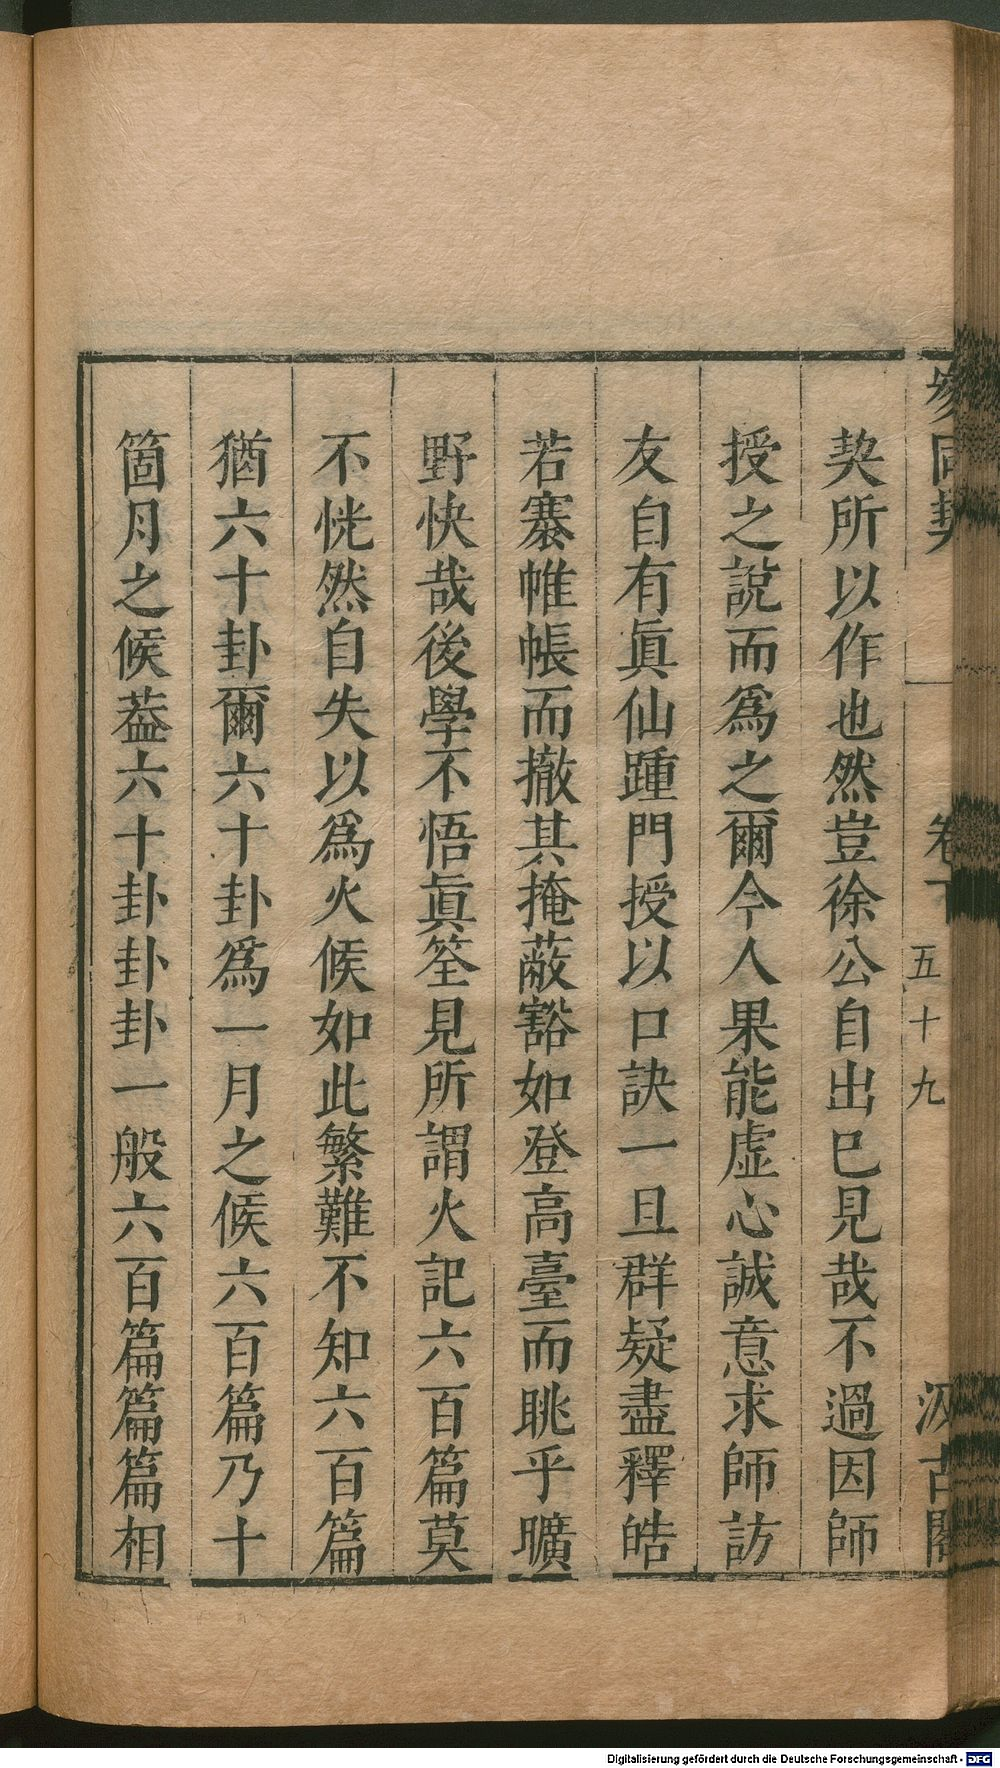 參同契 卷下 五十九 汲古閣
契所以作也然豈徐公自出已見哉不過因師
授之說而爲之爾今人果能虛心誠意求師訪
友自有眞仙踵門授以口訣一旦群疑盡釋皓
若褰帷帳而撤其掩蔽豁如登高臺而眺乎曠
野快哉後學不悟眞筌見所謂火記六百篇莫
不恍然自失以爲火候如此繁難不知六百篇
猶六十卦爾六十卦爲一月之候六百篇乃十
箇月之候葢六十卦卦卦一般六百篇篇篇相
Digitalisierung gefördert durch die Deutsche Forschungsgemeinschaft - DFG